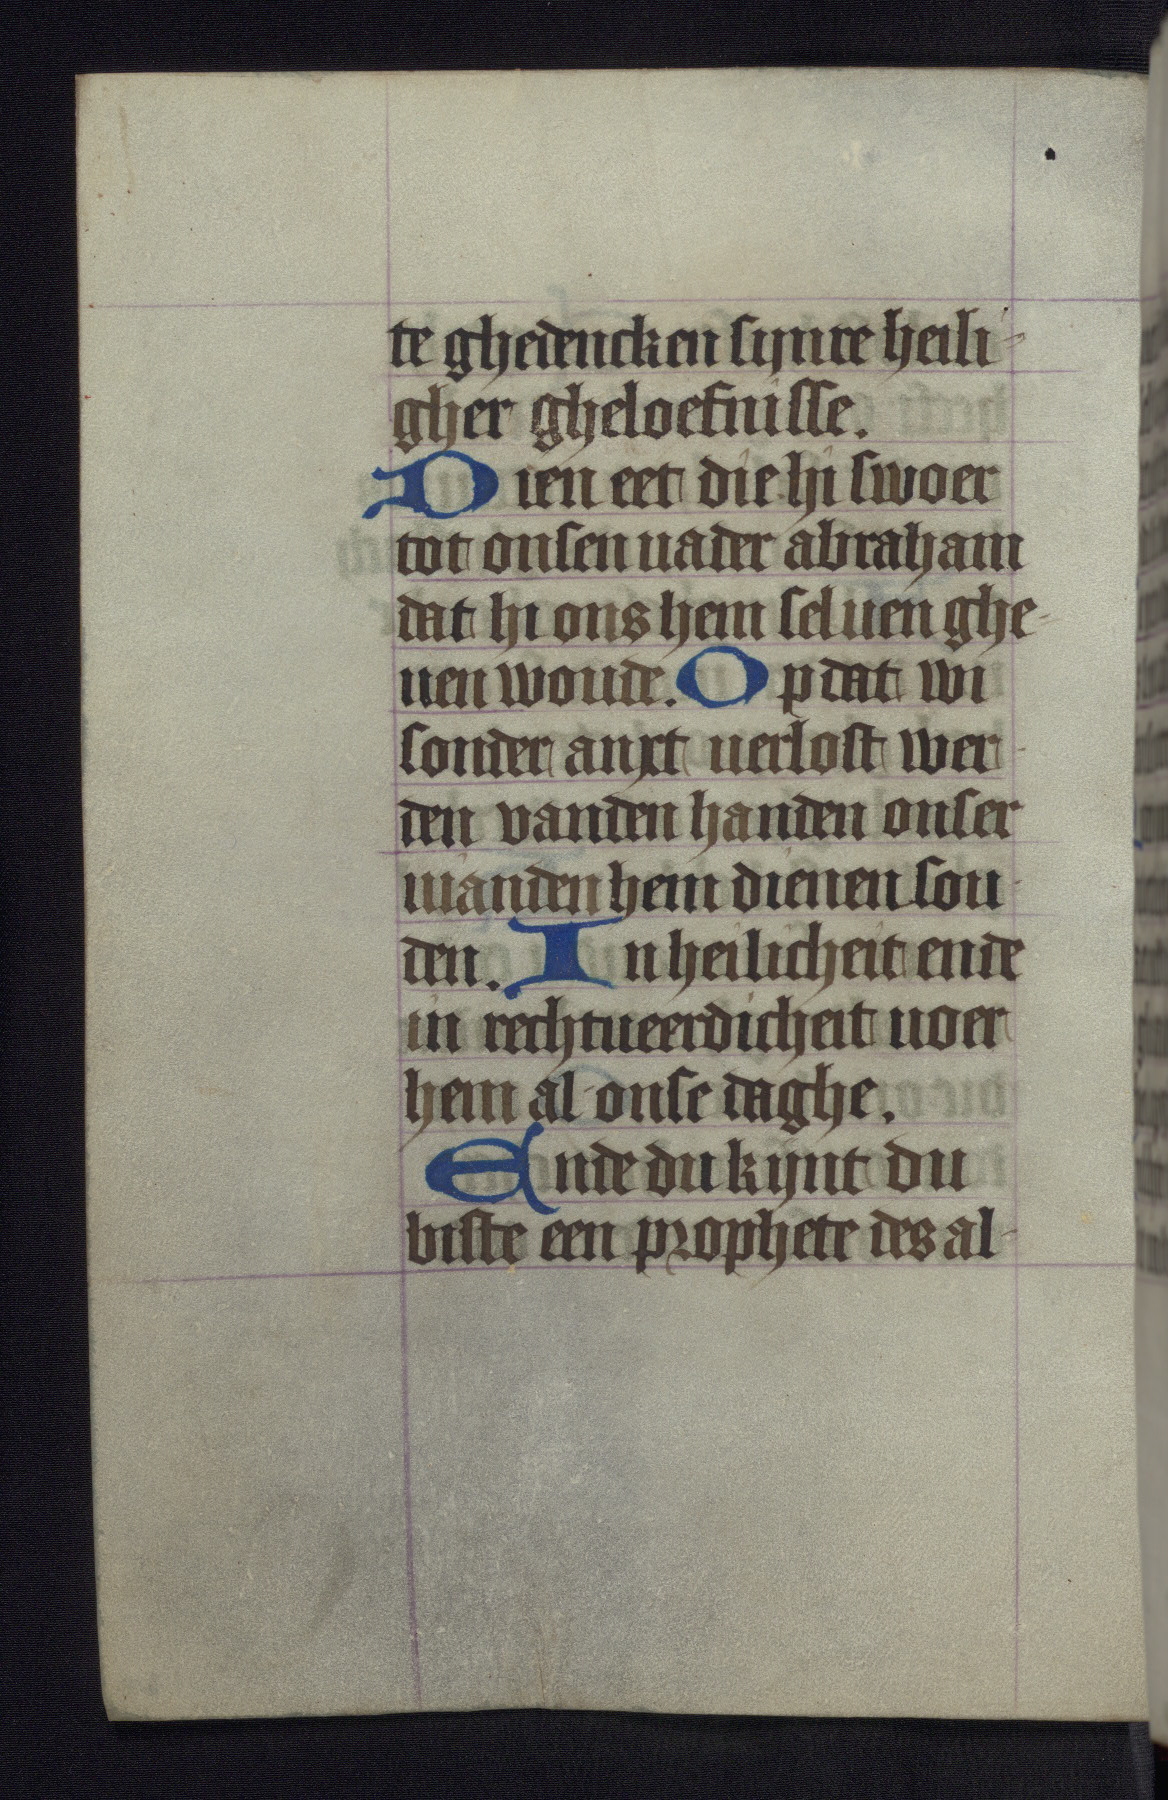 te ghedencken sijnre heili-
gher gheloefnisse.
Dien eet die hi swoer
tot onsen uader abraham
dat hi ons hem seluen ghe-
uen woude. Op dat wi
sonder anxt uerlost wer-
den vanden handen onser
uianden hem dienen sou-
den. In heilicheit ende
in rechtueerdicheit uoer
hem al onse daghe.
Ende du kijnt du
biste een prophete des al-